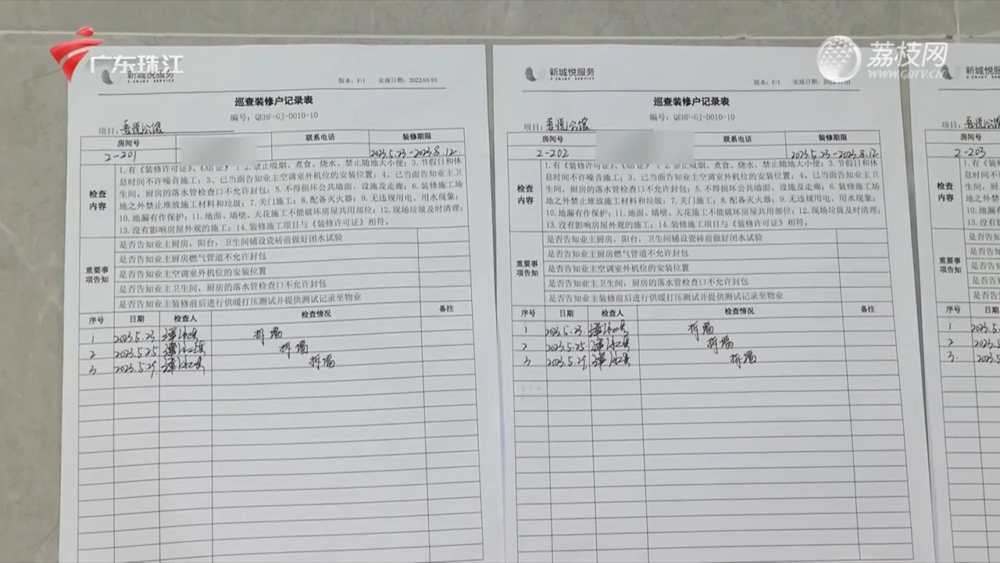 广东珠江
荔枝网
WWW.GDTV.CN
新城悦服务
版本：F/1 实施日期：2022/01/01
巡查装修户记录表
编号：QEHF-GJ-D010-10
项目：吾悦公馆
房间号 联系电话 装修期限
2-201 2023.5.23-2023.8.12
检查内容
1.有《装修许可证》、《出入证》；2.禁止吸烟、煮食、烧水、禁止随地大小便；3.节假日和休
息时间不许噪音施工；3、已当面告知业主空调室外机位的安装位置；4、已当面告知业主卫
生间，厨房的落水管检查口不允许封包；5.不得损坏公共墙面、设施及走廊；6.装修施工场
地之外禁止堆放施工材料和垃圾；7.关门施工；8.配备灭火器；9.无违规用电、用水现象；
10.地漏有作保护；11.地面、墙壁、天花施工不能破坏房屋共用部位；12.现场垃圾及时清理；
13.没有影响房屋外观的施工；14.装修施工项目与《装修许可证》相符。
重要事项告知
是否告知业主厨房，阳台，卫生间铺设瓷砖前做好闭水试验
是否告知业主厨房燃气管道不允许封包
是否告知业主空调室外机位的安装位置
是否告知业主卫生间，厨房的落水管检查口不允许封包
是否告知业主装修前后进行供暖打压测试并提供测试记录至物业
序号 日期 检查人 检查情况 备注
1 2023.5.23 拆墙
2 2023.5.25 拆墙
3 2023.5.29 拆墙
新城悦服务
版本：F/1 实施日期：2022/01/01
巡查装修户记录表
编号：QEHF-GJ-D010-10
项目：吾悦公馆
房间号 联系电话 装修期限
2-202 2023.5.23-2023.8.12
检查内容
1.有《装修许可证》、《出入证》；2.禁止吸烟、煮食、烧水、禁止随地大小便；3.节假日和休
息时间不许噪音施工；3、已当面告知业主空调室外机位的安装位置；4、已当面告知业主卫
生间，厨房的落水管检查口不允许封包；5.不得损坏公共墙面、设施及走廊；6.装修施工场
地之外禁止堆放施工材料和垃圾；7.关门施工；8.配备灭火器；9.无违规用电、用水现象；
10.地漏有作保护；11.地面、墙壁、天花施工不能破坏房屋共用部位；12.现场垃圾及时清理；
13.没有影响房屋外观的施工；14.装修施工项目与《装修许可证》相符。
重要事项告知
是否告知业主厨房，阳台，卫生间铺设瓷砖前做好闭水试验
是否告知业主厨房燃气管道不允许封包
是否告知业主空调室外机位的安装位置
是否告知业主卫生间，厨房的落水管检查口不允许封包
是否告知业主装修前后进行供暖打压测试并提供测试记录至物业
序号 日期 检查人 检查情况 备注
1 2023.5.23 拆墙
2 2023.5.25 拆墙
3 2023.5.29 拆墙
项目：吾悦公馆
房间号
2-203
检查内容
重要事项告知
序号 日期
1 2023.5
2 2023.5
3 2023.5